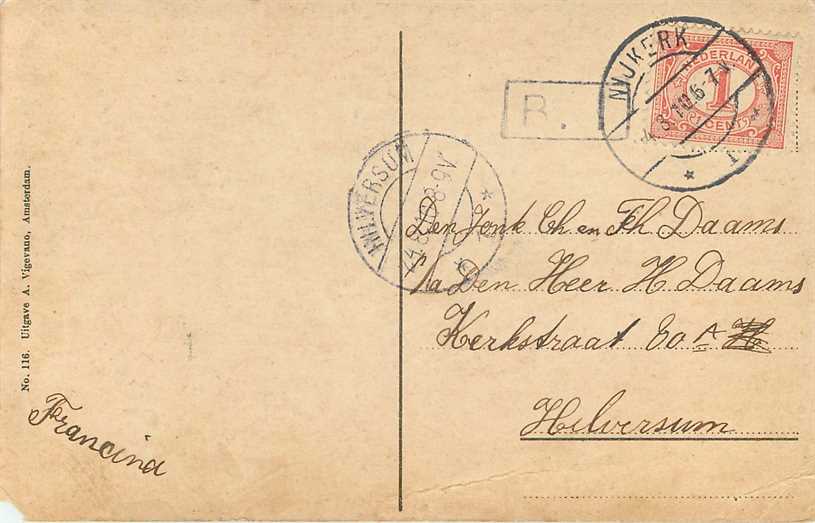 No. 116. Uitgave A. Vigevano, Amsterdam.
Francina
B.
NIJKERK
4. 8.10. 6-7V.
1
NEDERLAND
1
CENT
HILVERSUM
4.8.10 8-9V
Den Jonk Ch en Fh Daams
Den Heer H Daams
Kerkstraat 60 A
Hilversum